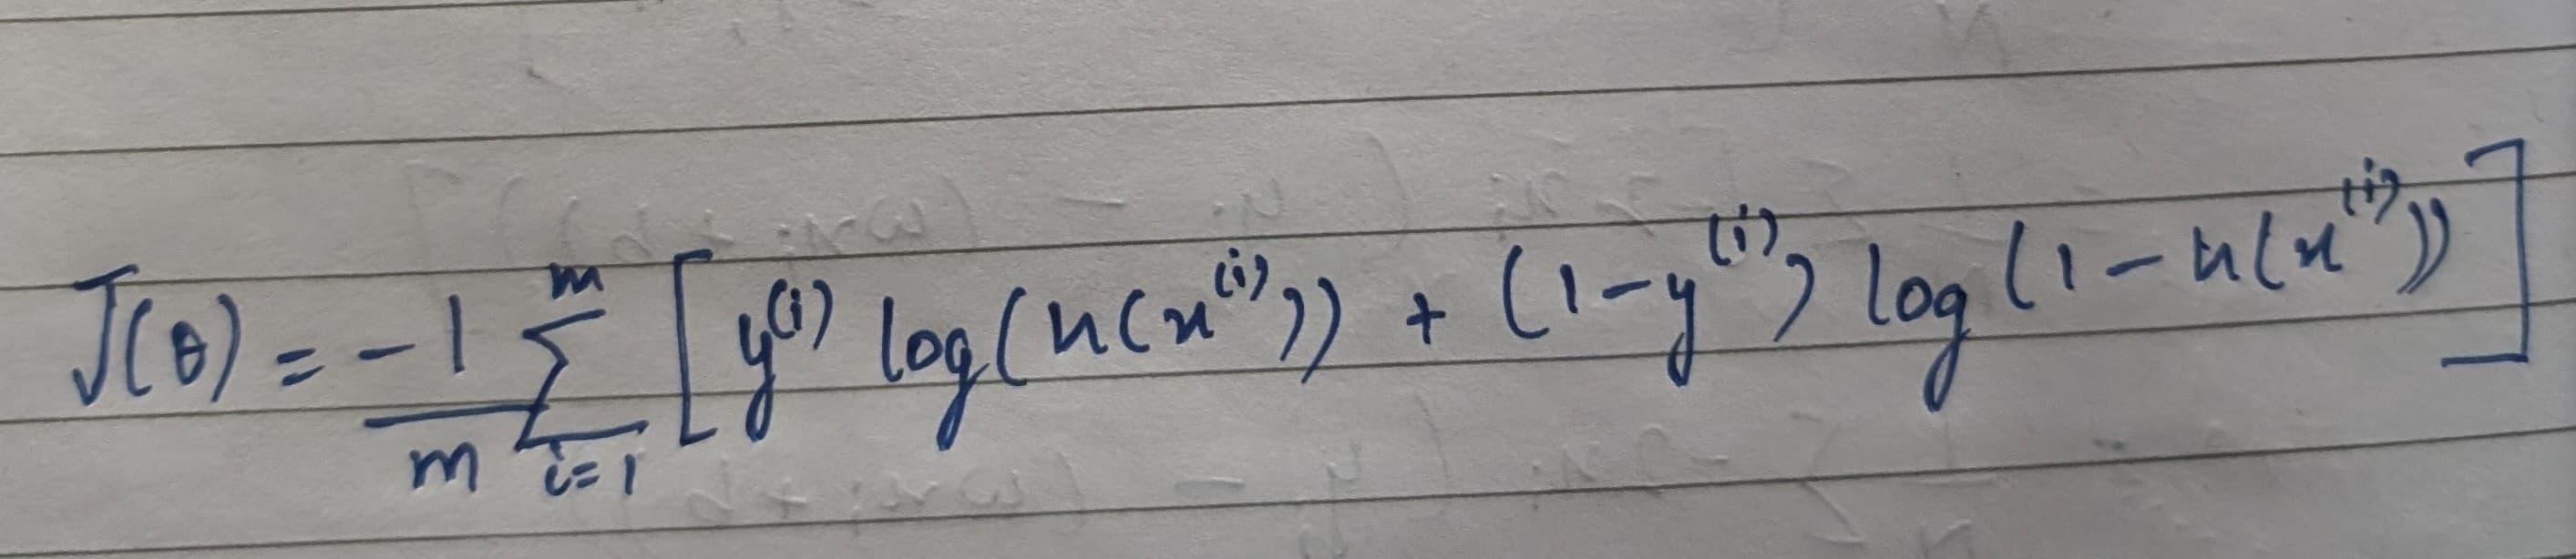 J(θ) = -1/m ∑_{i=1}^{m} [ y^{(i)} log(h(x^{(i)})) + (1-y^{(i)}) log(1-h(x^{(i)})) ]